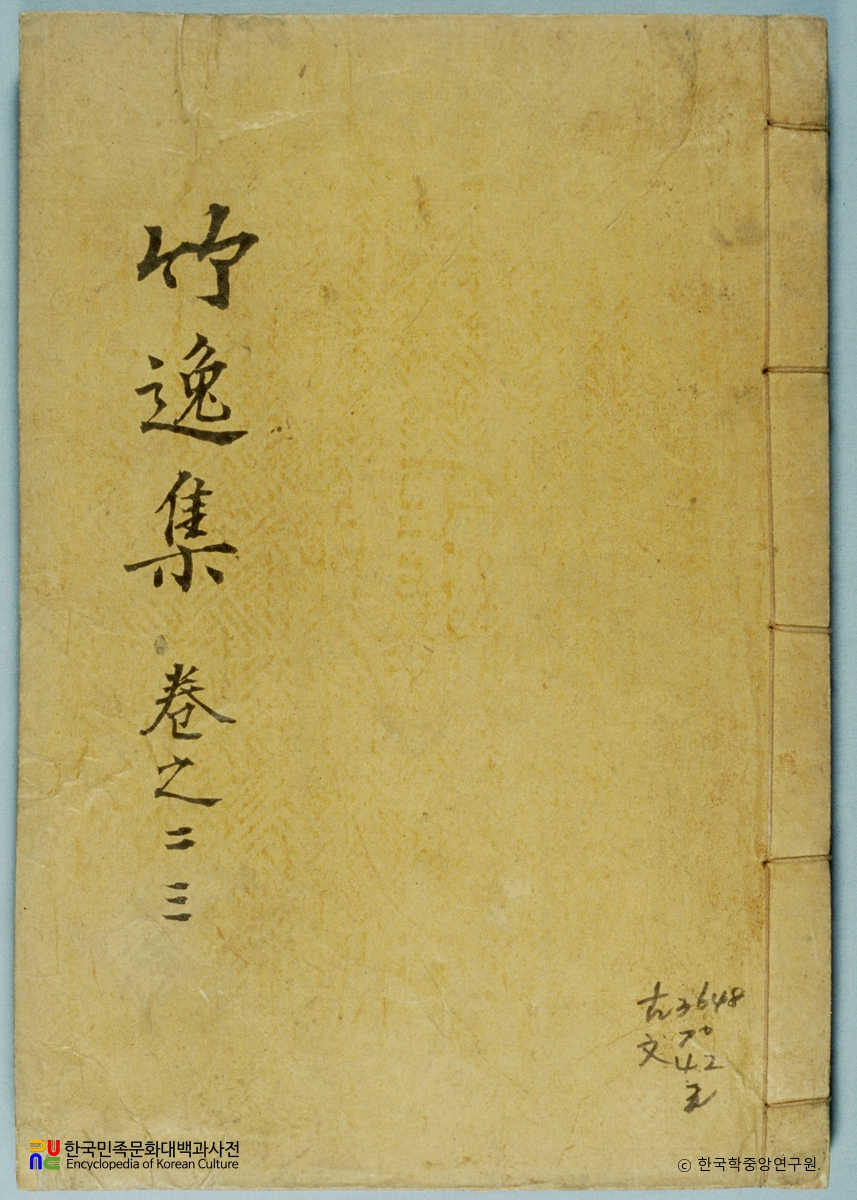 竹逸集 卷之二三
古3648
文70
42
한국민족문화대백과사전
Encyclopedia of Korean Culture
© 한국학중앙연구원.